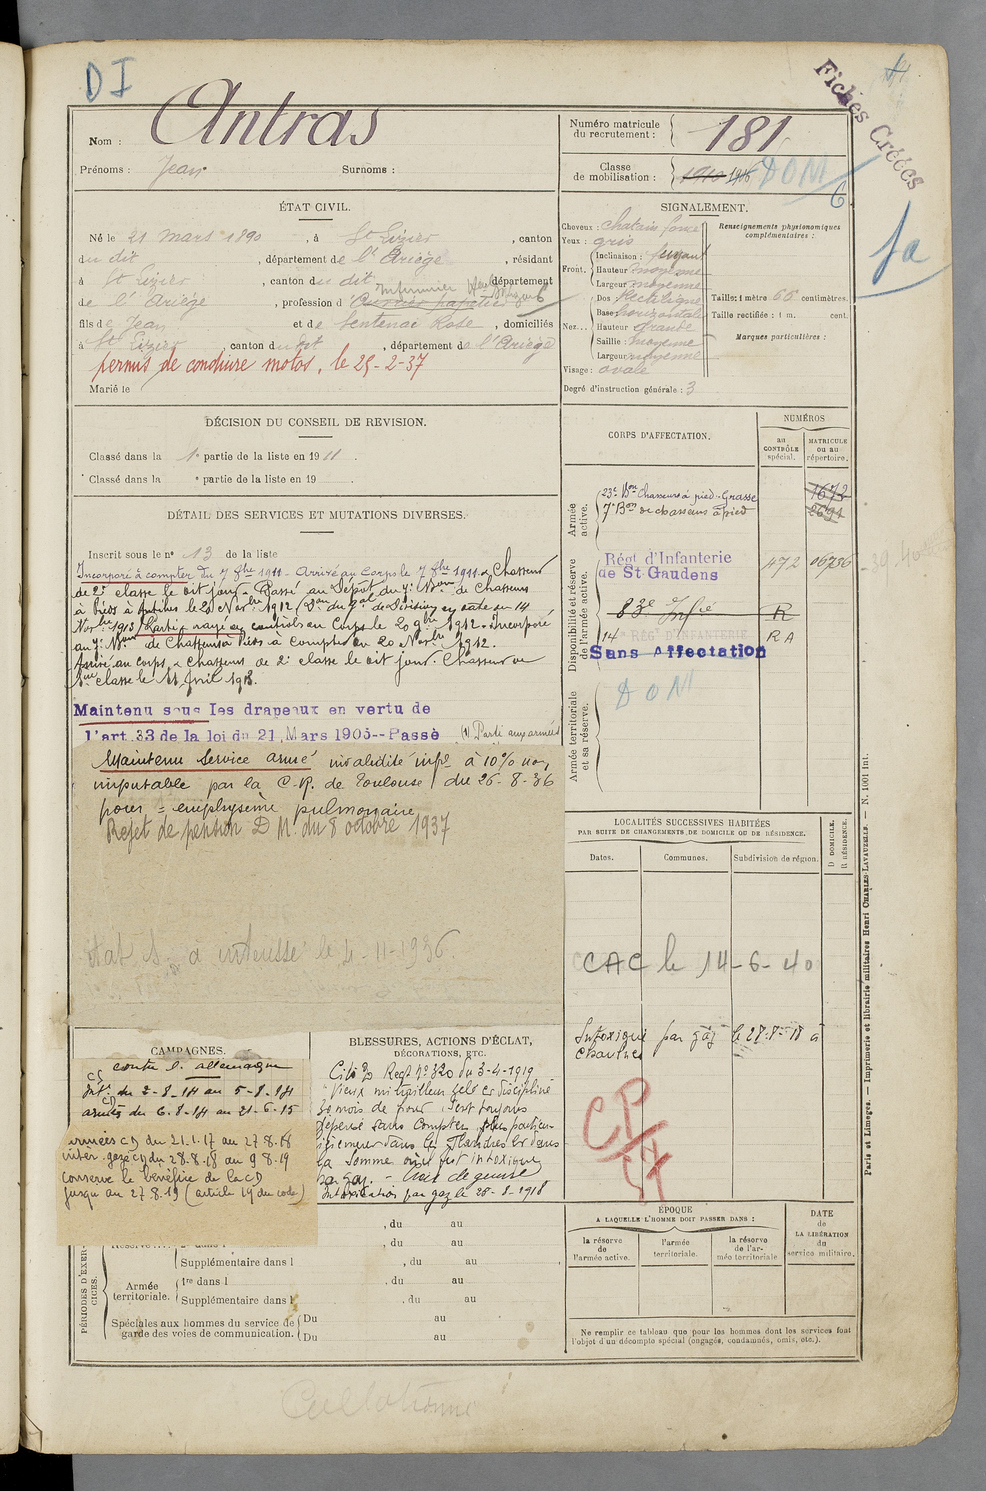 DI
Fiches Créées
Nom : Antras
Prénoms : Jean Surnoms :
Numéro matricule du recrutement : 181
Classe de mobilisation : 1910 1906 DOM
6
fa
ÉTAT CIVIL.
Né le 21 mars 1890, à St Lizier, canton
du dit, département de l'Ariège, résidant
à St Lizier, canton du dit, département
Infirmier
de l'Ariège, profession d'Ouvrier papetier
fils de Jean et de Sentenac Rose, domiciliés
à St Lizier, canton du dit, département de l'Ariège
permis de conduire motos, le 25-2-37
Marié le
SIGNALEMENT.
Cheveux : chatain foncé
Yeux : gris
Front. Inclinaison : fuyant
Hauteur moyenne
Largeur moyenne
Nez... Dos Rectiligne
Base horizontale
Hauteur grande
Saillie : moyenne
Largeur moyenne
Visage : ovale
Renseignements physionomiques complémentaires :
Taille : 1 mètre 66 centimètres.
Taille rectifiée : 1 m. cent.
Marques particulières :
Degré d'instruction générale : 3
DÉCISION DU CONSEIL DE REVISION.
Classé dans la 1e partie de la liste en 1911.
Classé dans la e partie de la liste en 19 .
DÉTAIL DES SERVICES ET MUTATIONS DIVERSES.
Inscrit sous le no 13 de la liste
Incorporé à compter du 7 8bre 1911 - Arrivé au Corps le 7 8bre 1911 & Chasseur
de 2e classe le dit jour. Passé au Dépôt du 7e Bon de Chasseurs
à Pieds à Antibes le 20 Novbre 1912 Don du Gal de Division en date du 14
Novbre 1913 Parti & rayé des contrôles du Corps le 20 9bre 1912. Incorporé
au 7e Bon de Chasseurs à Pieds à compter du 20 Novbre 1912.
Arrivé au corps & chasseur de 2e classe le dit jour. Chasseur de
1ère classe le 11 Avril 1913.
Maintenu sous les drapeaux en vertu de
l'art.33 de la loi du 21 Mars 1905--Passé (1) Parti aux armées
Maintenu service armé invalidité infre à 10% non
imputable par la C.R. de Toulouse du 26-8-36
pour = emphysème pulmonaire
Rejet de pension D M. du 8 octobre 1937
état S. à intéressé le 4-11-1936.
CORPS D'AFFECTATION.
NUMÉROS
au CONTRÔLE spécial.
MATRICULE ou au répertoire.
Armée active.
23e Bon Chasseurs à pied - Grasse 1673
7e Bon de chasseurs à pied 2691
Disponibilité et réserve de l'armée active.
Régt d'Infanterie de St Gaudens 472 06786
83e Infie R
14e RÉGt D'INFANTERIE RA
Sans Affectation
Armée territoriale et sa réserve.
DOM
LOCALITÉS SUCCESSIVES HABITÉES
PAR SUITE DE CHANGEMENTS DE DOMICILE OU DE RÉSIDENCE.
Dates. Communes. Subdivision de région. D DOMICILE. R RÉSIDENCE.
CAC le 14-6-40
Intoxiqué par gaz le 27-8-18 à
Chaulnes
CP
CAMPAGNES.
contre l'allemagne
CS
Intr. du 2-8-14 au 5-8-14
CD
armées du 6.8.14 au 21-6-15
armées CD du 21.1.17 au 27.8.18
inter. gazé CD du 28.8.18 au 9 8.19
conserve le bénéfice de la CD
jusqu'au 27.8.19 (article 19 du code)
BLESSURES, ACTIONS D'ÉCLAT,
DÉCORATIONS, ETC.
Cité O/ Regt No 320 du 3-4-1919
"Vieux mitrailleur zélé et discipliné
30 mois de front, s'est toujours
dépensé sans compter, plus particu-
lièrement dans les Flandres et dans
la Somme où il fut intoxiqué
par gaz. - Croix de guerre
Intoxication par gaz le 28-8-1918
PÉRIODES D'EXERCICES.
Supplémentaire dans l , du au
Armée territoriale. 1re dans l , du au
Supplémentaire dans l , du au
Spéciales aux hommes du service de garde des voies de communication. Du au
Du au
ÉPOQUE
A LAQUELLE L'HOMME DOIT PASSER DANS :
la réserve de l'armée active.
l'armée territoriale.
la réserve de l'armée territoriale
DATE de LA LIBÉRATION du service militaire.
Ne remplir ce tableau que pour les hommes dont les services font
l'objet d'un décompte spécial (engagés, condamnés, omis, etc.).
Paris et Limoges. — Imprimerie et librairie militaires Henri CHARLES-LAVAUZELLE. — N. 1001 Int.
Collationné